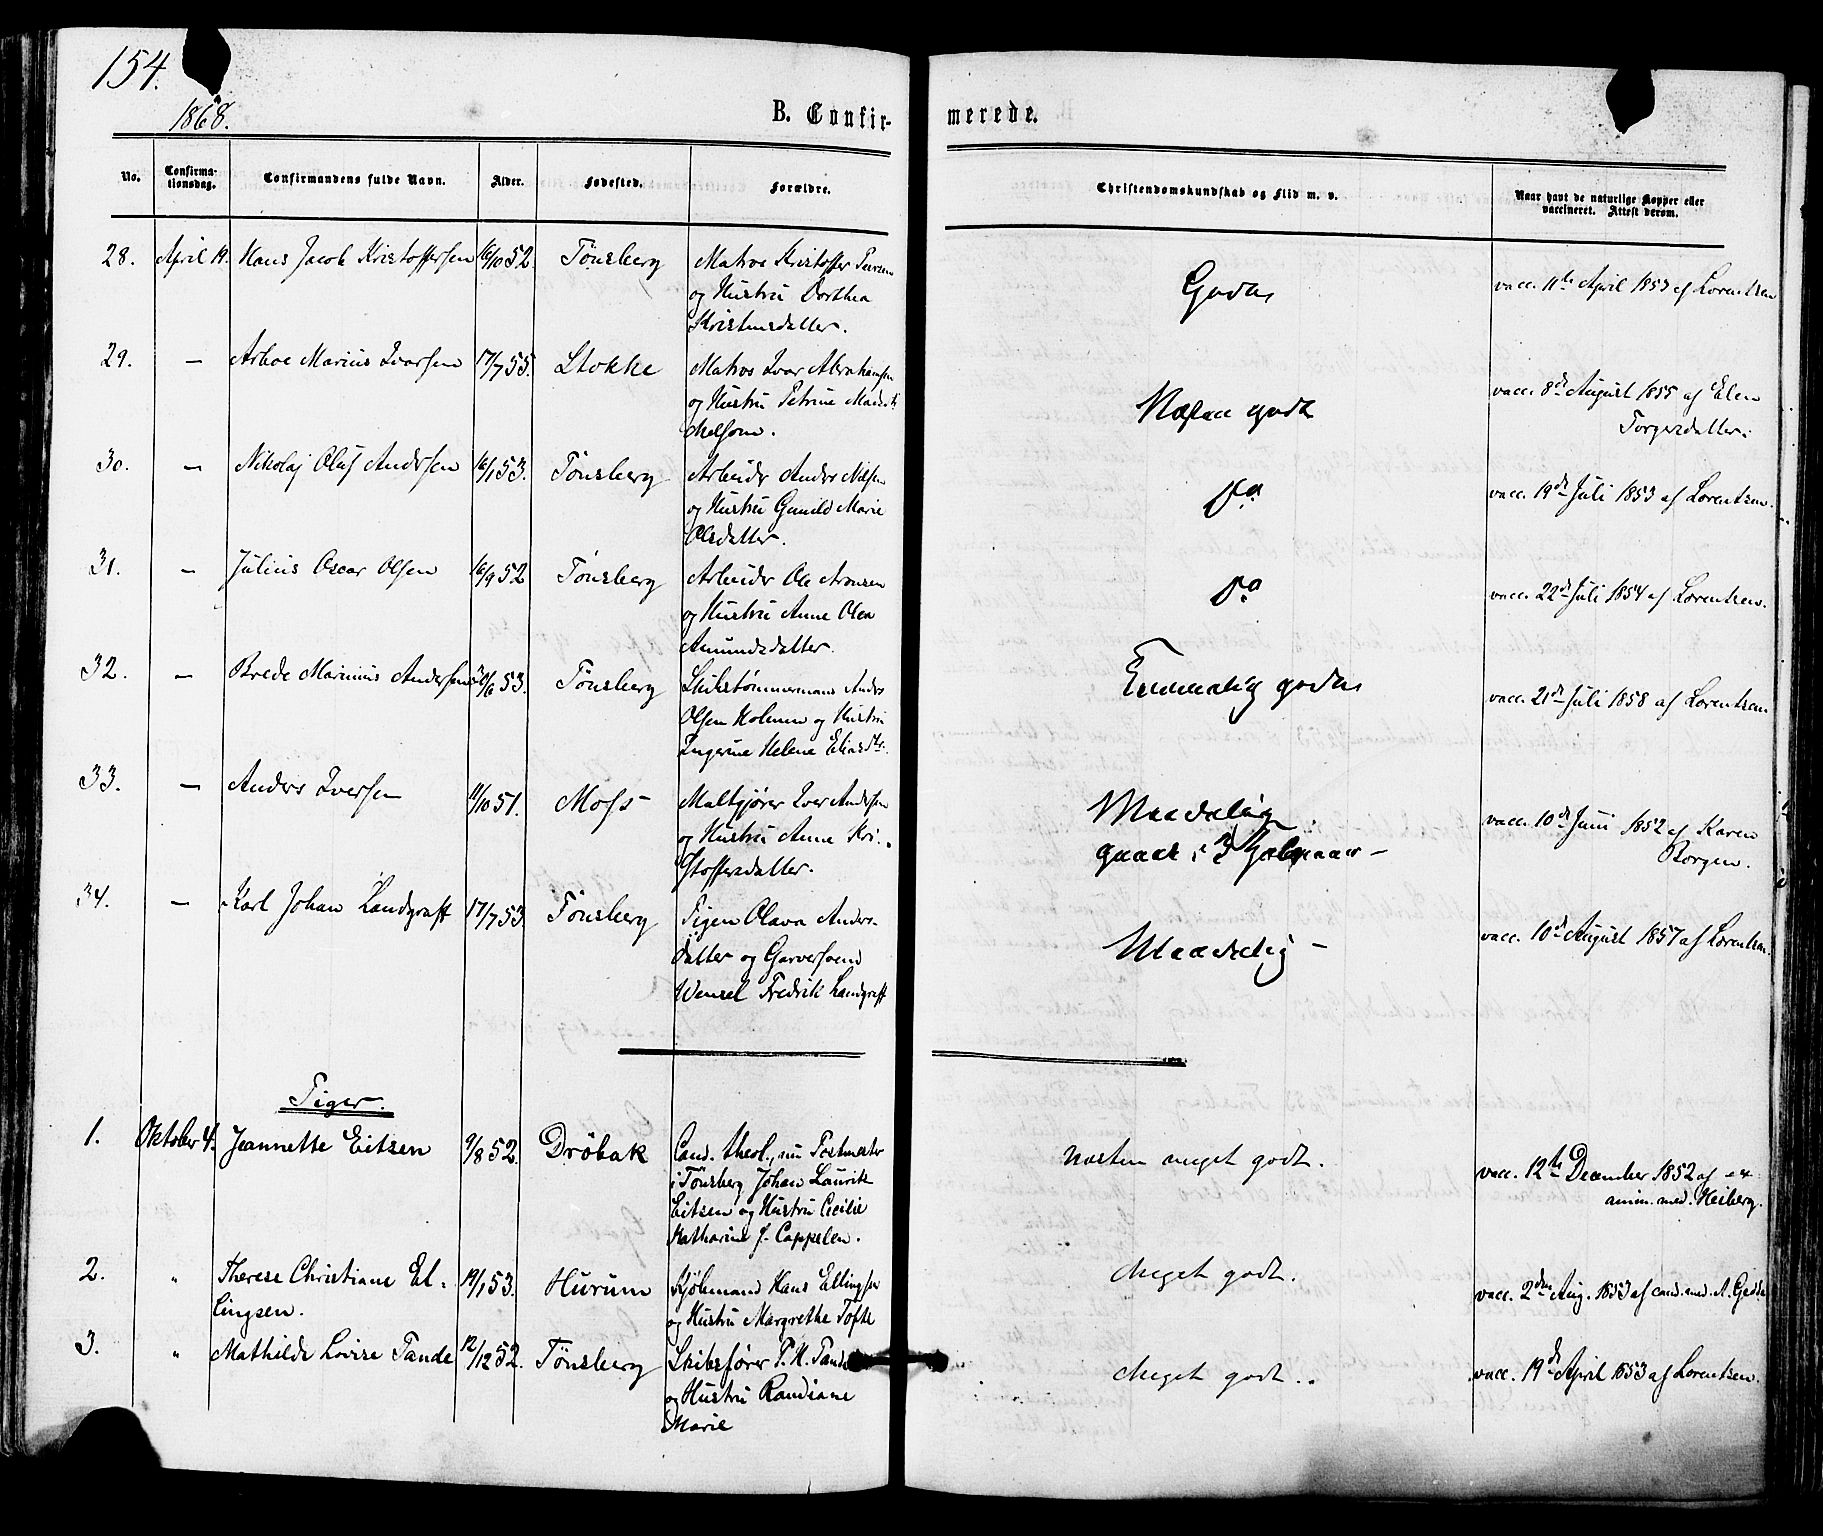 154.
1868.
B. Confirmerede.
No. Confirmationsdag. Confirmandens fulde Navn. Alder. Fødested. Forældre. Christendomskundskab og Flid m. v. Naar havt de naturlige Kopper eller vaccineret. Attest derom.
28. April 19. Hans Jacob Kristoffersen 16/10 52. Tönsberg Matros Kristoffer Iversen Godt vacc. 11te April 1853 af Lorentsen
og Hustru Dorthea
Kristensdatter.
29. — Marius Ivarsen 17/7 55. Stokke Matros Ivar Abrahamsen Næsten godt vacc. 8de August 1855 af Elen
og Hustru Petrine Torgersdatter.
Melsom.
30. — Nikolaj Oluf Andersen 16/1 53. Tönsberg Arbeider Anders Nilsen Do vacc. 19de Juli 1853 af Lorentsen.
og Hustru Gunild Marie
Olsdatter.
31. — Julius Oscar Olsen 16/9 52 Tönsberg Arbeider Ole Aronsen Do vacc. 22de Juli 1854 af Lorentsen.
og Hustru Anne Olea
Amundsdatter.
32. — Brede Marinius Andersen 30/6 53. Tönsberg Skibstömmermand Anders godt vacc. 21de Juli 1858 af Lorentsen
Olsen Holmen og Hustru
Ingerine Helene Eliasdtr.
33. — Anders Iversen 11/10 51. Moss Maltgjører Iver Andersen Maadelig vacc. 10de Juni 1852 af Karen
og Hustru Anne Kri- gaaet i 3 Borgen.
stoffersdatter.
34. — Karl Johan Landgraff 17/7 53. Tönsberg Pigen Olava Anders- Maadelig — vacc. 10de August 1857 af Lorentsen.
datter og Garversvend
Wensel Fredrik Landgraff
Piger.
1. Oktober 4. Jeannette Eitsen 9/8 52. Dröbak Cand. theol., nu Postmester Næsten meget godt. vacc. 12te December 1852 af ex
i Tönsberg Johan Laurik amm. med. Heiberg.
Eitsen og Hustru Cecilie
Katharine f. Cappelen.
2. " Therese Christiane El- 19/1 53. Hurum Kjöbmand Hans Ellingsen Meget godt. vacc. 2den Aug. 1853 af cand. med. A. Gedde
lingsen. og Hustru Margrethe Tofte
3. " Mathilde Lovise Tande 12/12 52. Tönsberg Skibsfører P. H. Tande Meget godt. vacc. 19de April 1853 af Lorentsen.
og Hustru Randiane
Marie